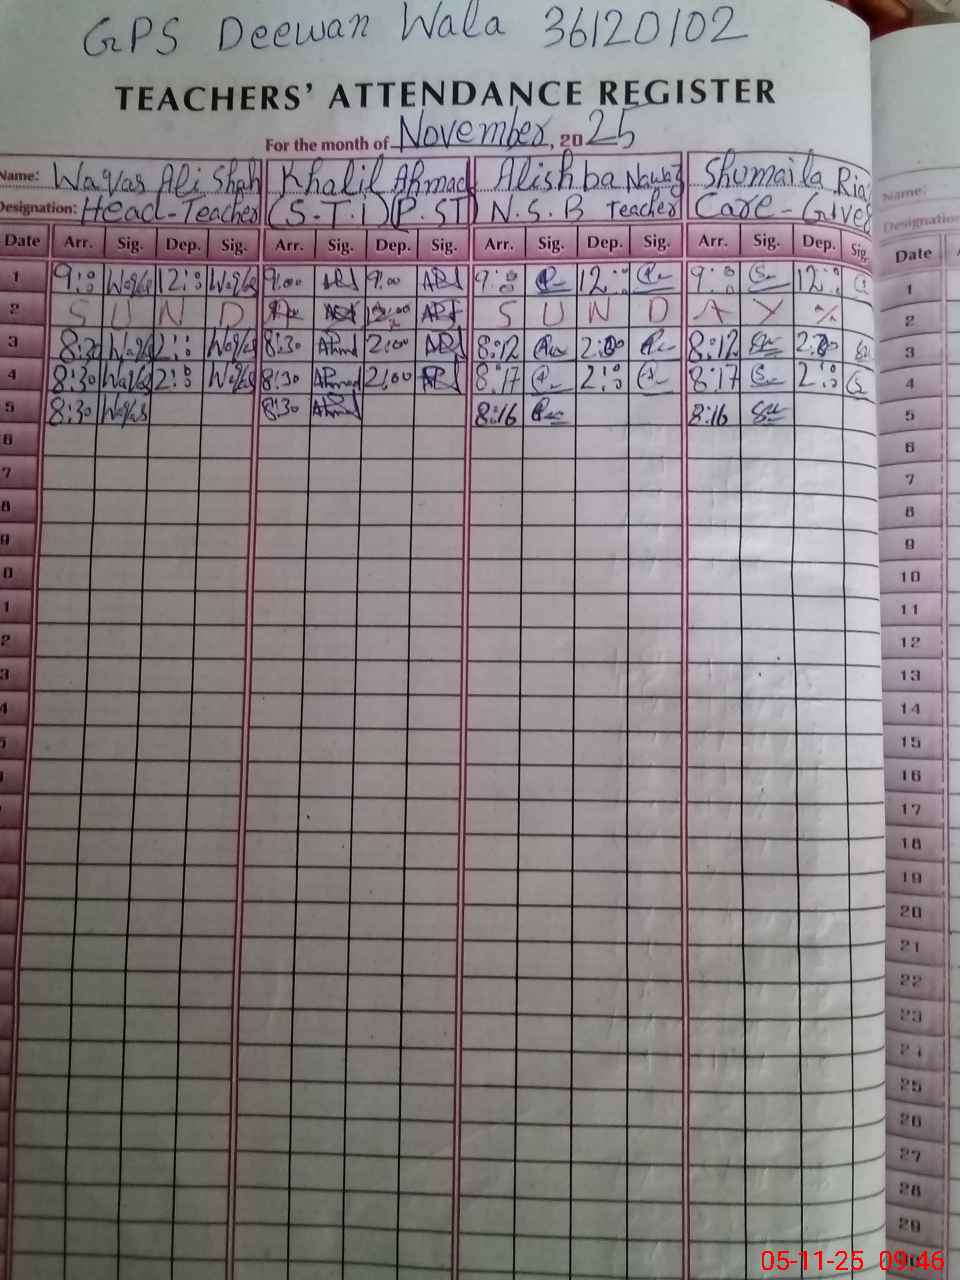 GPS Deewan Wala 36120102
TEACHERS' ATTENDANCE REGISTER
For the month of November, 2025
Name: Waqas Ali Shah Khalil Ahmad Alishba Nawaz Shumaila Ria Name:
Designation: Head-Teacher (S.T.I)(P.ST) N.S.B Teacher Care-Giver Designatio
Date Arr. Sig. Dep. Sig. Arr. Sig. Dep. Sig. Arr. Sig. Dep. Sig. Arr. Sig. Dep. Sig. Date
1 9:00 Waqas 12:00 Waqas 9:00 9:00 9:00 12:00 9:00 12:00 1
2 S U N D S U N D A Y 2
3 8:30 Waqas 2:00 Waqas 8:30 Ahmad 2:00 8:12 2:00 8:12 2:00 3
4 8:30 Waqas 2:00 Waqas 8:30 Ahmad 2:00 8:17 2:00 8:17 2:00 4
5 8:30 Waqas 8:30 Ahmad 8:16 8:16 5
6 6
7 7
8 8
9 9
0 10
1 11
2 12
3 13
4 14
5 15
16
17
18
19
20
21
22
23
24
25
26
27
28
29
05-11-25 09:46